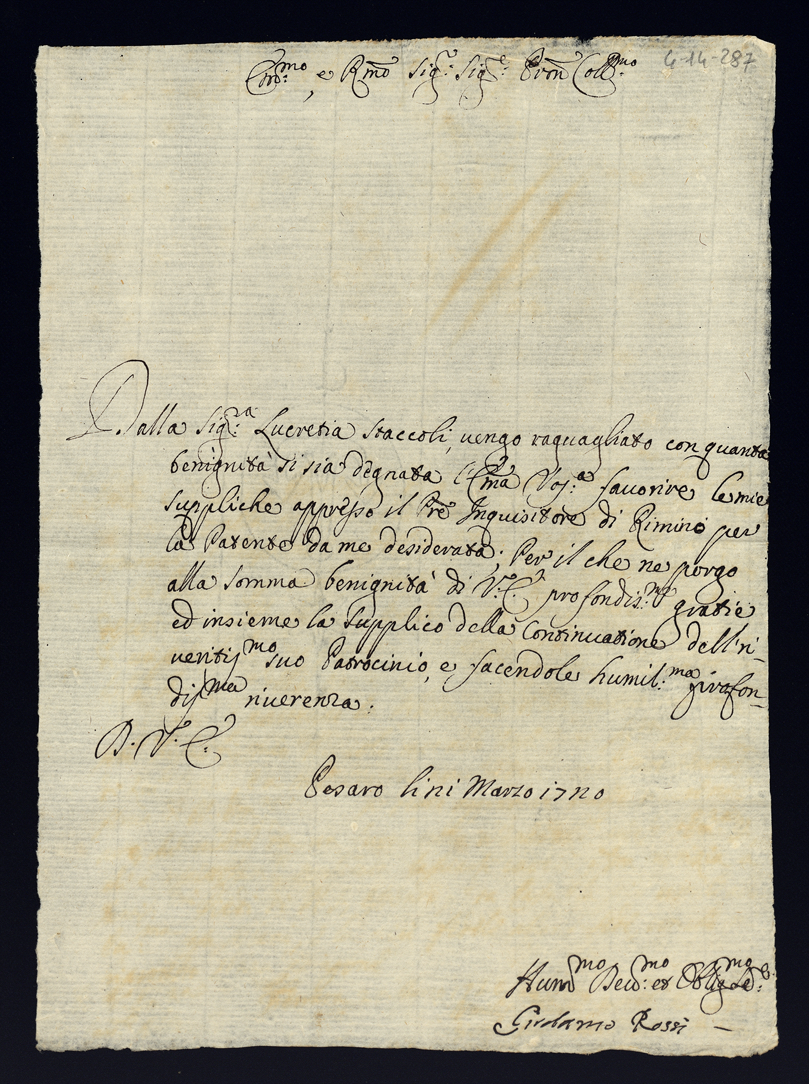 4-14-287
Em:mo, e Rmo Sigr: Sigre: Pron Coll:mo
Dalla Sig:ra Lucretia Staccoli, vengo raguagliato con quanta
benignità si sia degnata l'Ema Vos:a favorire le mie
suppliche appresso il Pre Inquisitore di Rimino per
la Patente da me desiderata; Per il che ne porgo
alla somma benignità di V.E. profondis:me gratie
ed insieme la supplico della Continuatione dell'ri-
veritis:mo suo Patrocinio, e facendole humil:ma profon-
diss:ma riverenza.
D. V. E.
Pesaro li Marzo
Hum:mo Dev:mo et Oblig:mo Se:
Girolamo Rossi